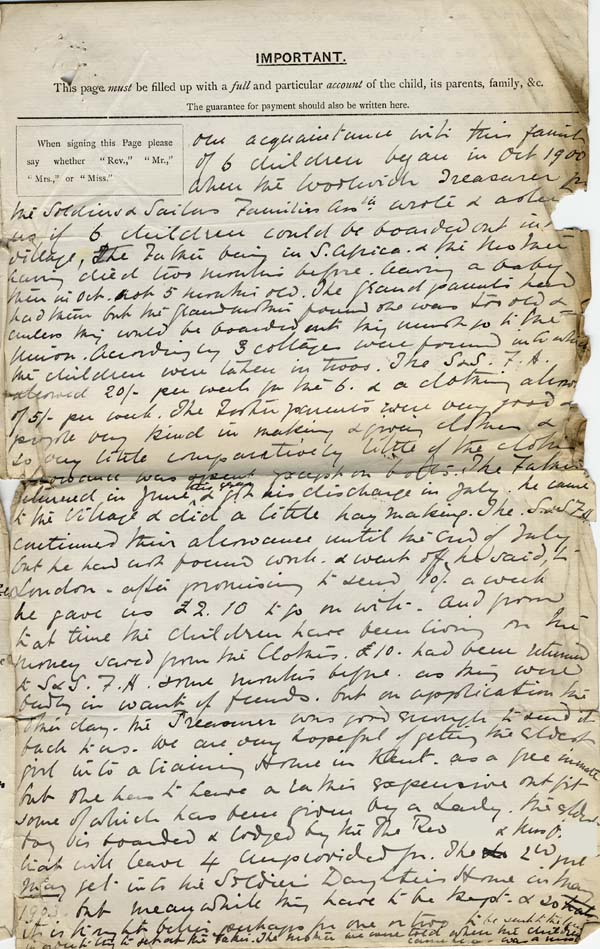 IMPORTANT.
This page must be filled up with a full and particular account of the child, its parents, family, &c.
The guarantee for payment should also be written here.
When signing this Page please
say whether "Rev.," "Mr.,"
"Mrs.," or "Miss."
Our acquaintance with this family
of 6 children began in Oct 1900
when the Woolwich Treasurer
the Soldiers & Sailors Families Assn wrote & asked
us if 6 children could be boarded out in
village, The Father being in S. Africa. & the Mother
having died two months before. leaving a baby
then in Oct. not 5 months old. The grandparents
had them but the grandmother found she was too old &
unless they could be boarded out they must go to the
Union. Accordingly 3 cottages were found into which
the children were taken in twos. The S&S. F. A.
allowed 20/- per week for the 6. & a clothing allow
of 5/- per week. The Foster parents were very good &
people very kind in making & giving clothes &
so very little comparatively little of the clothing
allowance was spent except on boots. The Father
returned in June this year & got his discharge in July. he came
to the village & did a little hay making. The S&SFA
continued their allowance until the end of July
but he had not found work. & went off, he said, to
London - after promising to send 10/. a week
he gave us £2.10 to go on with. And from
that time the children have been living on the
money saved from the Clothes. £10. had been returned
to S&S. F. A. some months before. as they were
badly in want of funds. but on application the
other day. the Treasurer was good enough to send it
back to us. We are very hopeful of getting the eldest
girl into a training Home in Kent. as a free inmate
but one has to have a rather expensive outfit
some of which has been given by a Lady. The eldest
boy is boarded & lodged by the The Rev & Mrs
that will leave 4 unprovided for. The 2nd girl
may get into the Soldiers Daughters Home in May
1903. but meanwhile they have to be kept. &
it is thought better perhaps for one or two to be sent to the